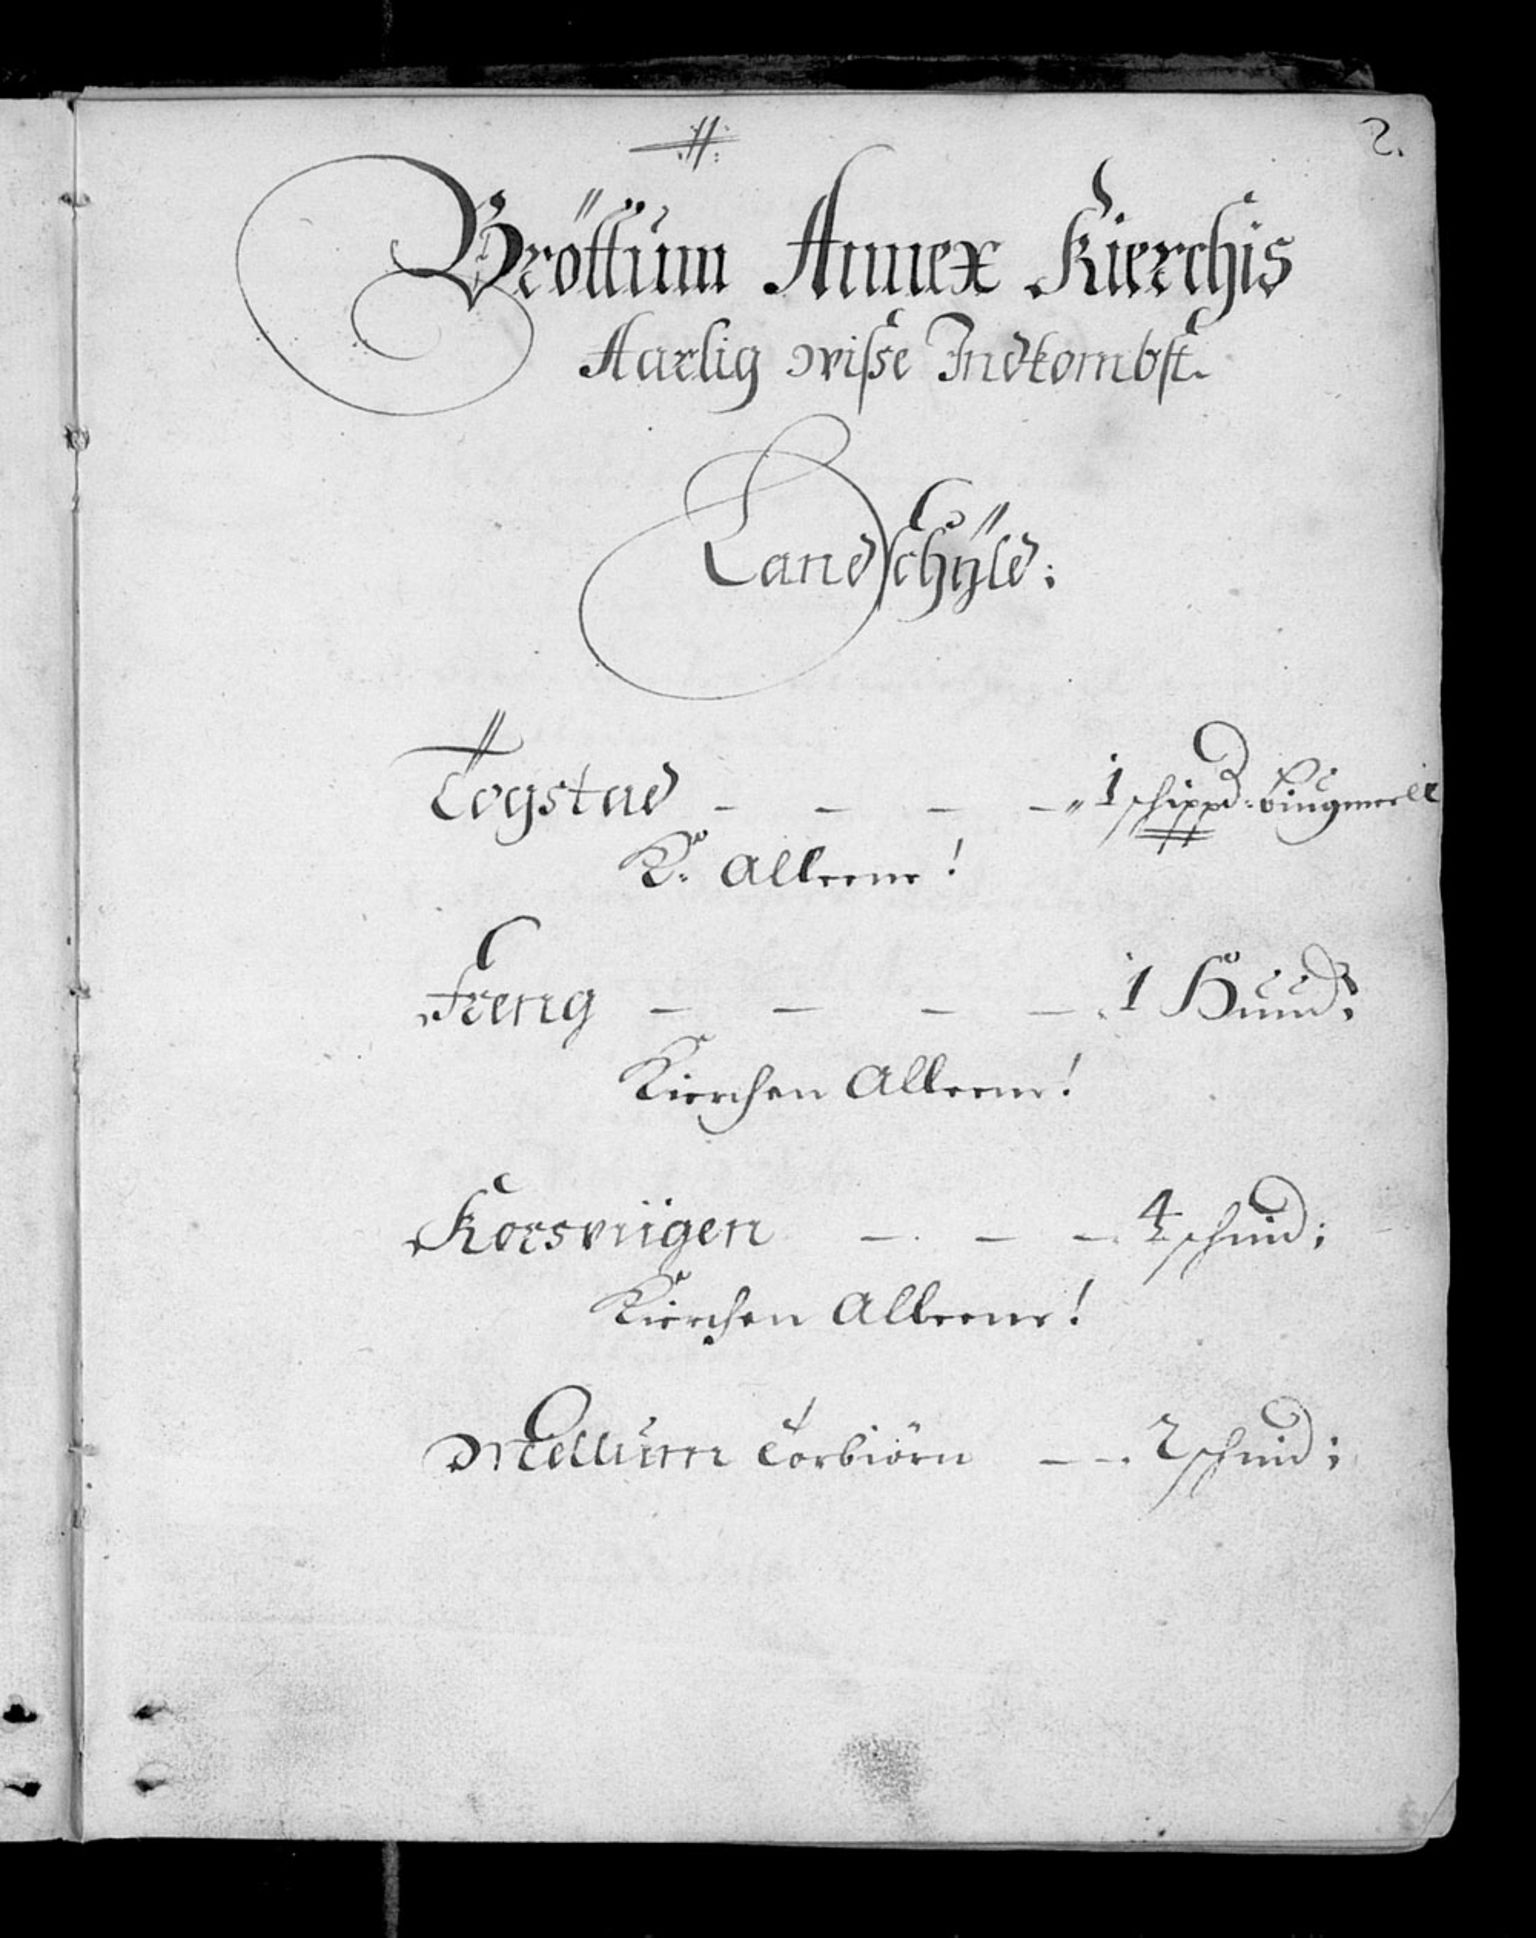 2.
Bröttum Annex Kierchis
Aarlig visse Indkombst.
Landschÿld:
Togstad — — — — 1 schippd: biugmeel
K: Alleene!
Freng — — — — 1 Huud;
Kierchen Alleene!
Korsviigen — — — 4 schind;
Kierchen Alleene!
Mellum Torbiörn — — 2 schind;